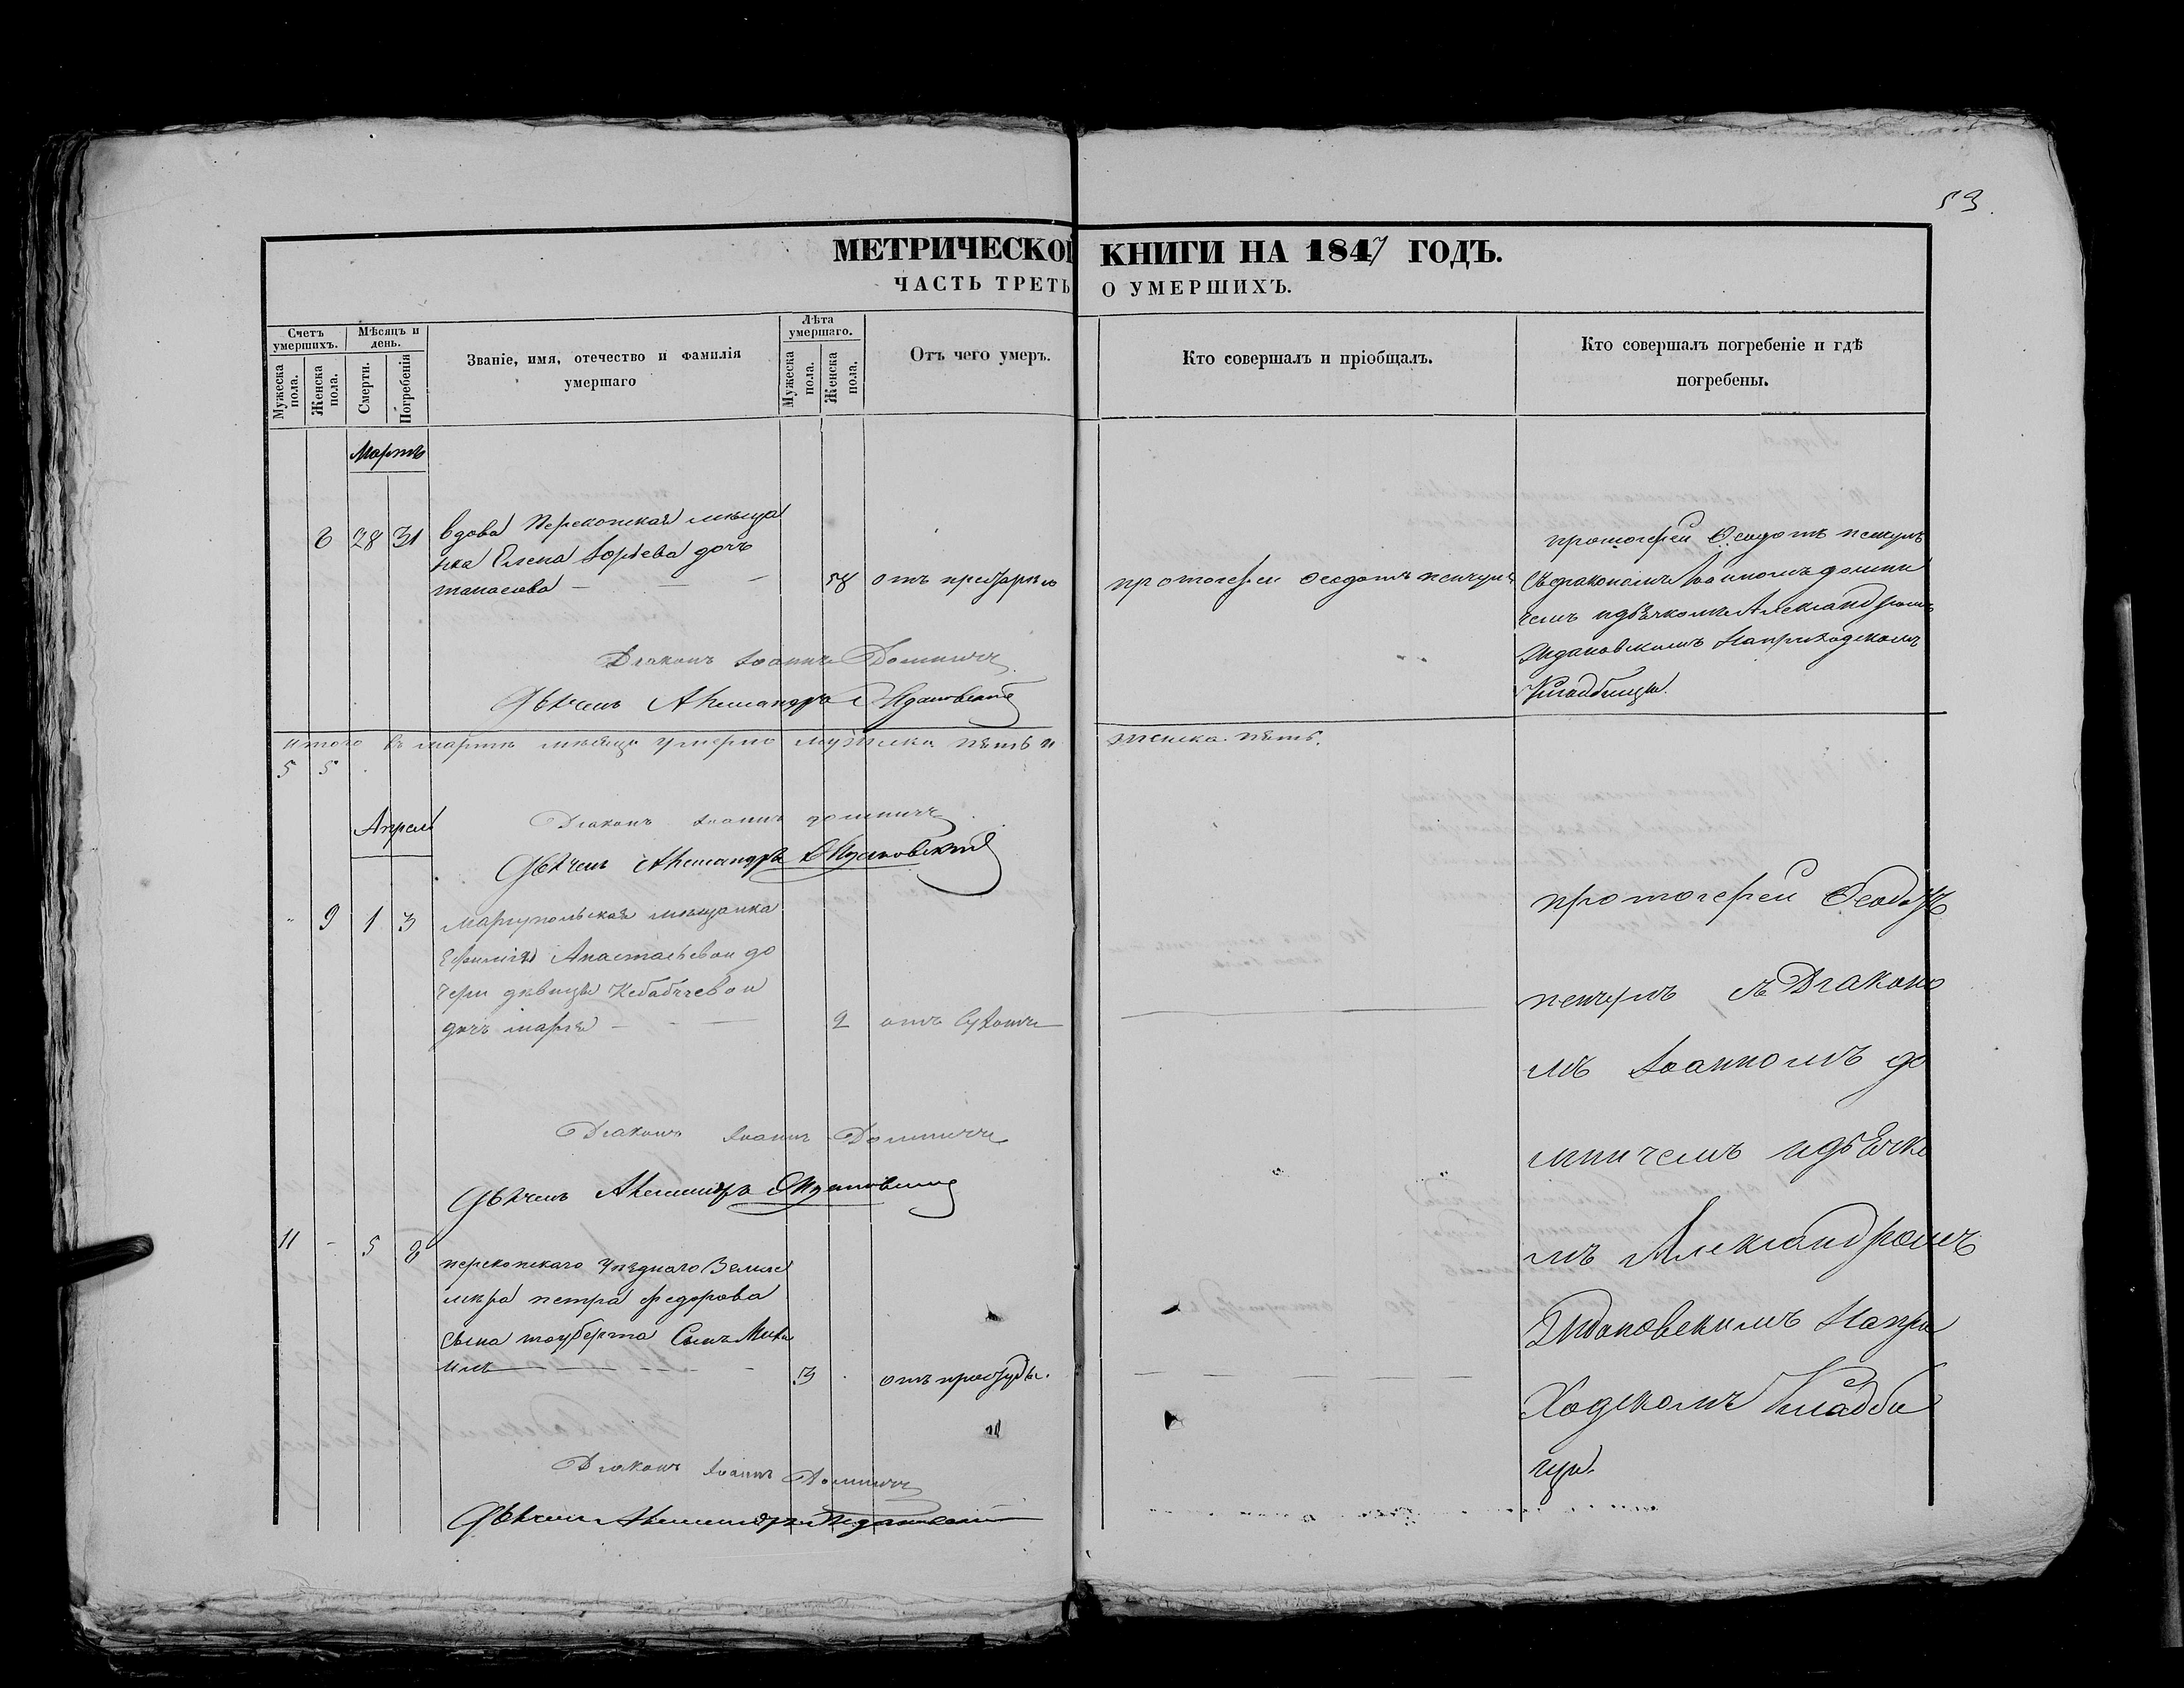 53.
МЕТРИЧЕСКОЙ КНИГИ НА 1847 ГОДЪ.
ЧАСТЬ ТРЕТЬ О УМЕРШИХЪ.
Счетъ умершихъ.
Мужеска пола.
Женска пола.
Мѣсяцъ и день.
Смерти.
Погребенія
Званіе, имя, отечество и фамилія
умершаго
Лѣта умершаго.
Мужеска пола.
Женска пола.
Отъ чего умеръ.
Кто совершалъ и пріобщалъ.
Кто совершалъ погребеніе и гдѣ
погребены.
Мартъ
6 28 31 вдова Перекопская мѣща
нка Елена Юрьева дочь
58
протоіерей Феодотъ
протоіерей Феодотъ
съ діакономъ Іоанномъ домни
чемъ и дьячкомъ Александромъ
Ждановскимъ на приходскомъ
Кладбищѣ.
Діаконъ Іоаннъ Домничъ
Дьячекъ Александръ Ждановскій
итого въ мартѣ мѣсяцѣ умерло мужска пять и женска пять.
5 5
Апрель
Діаконъ Іоаннъ домничъ
Дьячекъ Александръ Ждановскій
9 1 3 Маріупольская мѣщанка
Ефимія Анастасьевой до
чери дѣвицы
дочь марія 2 отъ
протоіерей Феодотъ
съ Діаконо
мъ Іоанномъ до
мничемъ и дьячко
мъ Александромъ
Ждановскимъ на при
ходскомъ Кладби
щѣ.
Діаконъ Іоаннъ Домничъ
Дьячекъ Александръ Ждановскій
11 - 5 8 перекопскаго уѣзднаго Земле
мѣра петра федорова
сына тоуберта Сынъ Миха
илъ 3 отъ простуды.
Діаконъ Іоаннъ Домничъ
Дьячекъ Александръ Ждановскій